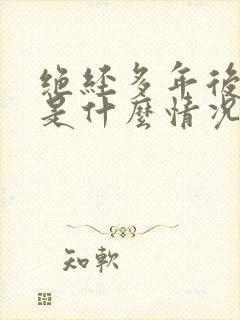 絕經多年後
是什麼情況
知軟